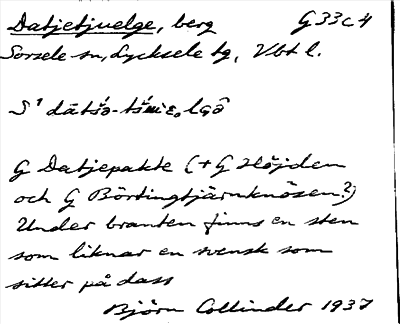 Datjetjuelge, berg G 33c4
Sorsele sn, Lycksele tg, Vbt l.
G Datjepakte (+ G Höjden
och G Börtingtjärnknösen?)
Under branten finns en sten
som liknar en svensk som
sitter på dass
Björn Collinder 1937